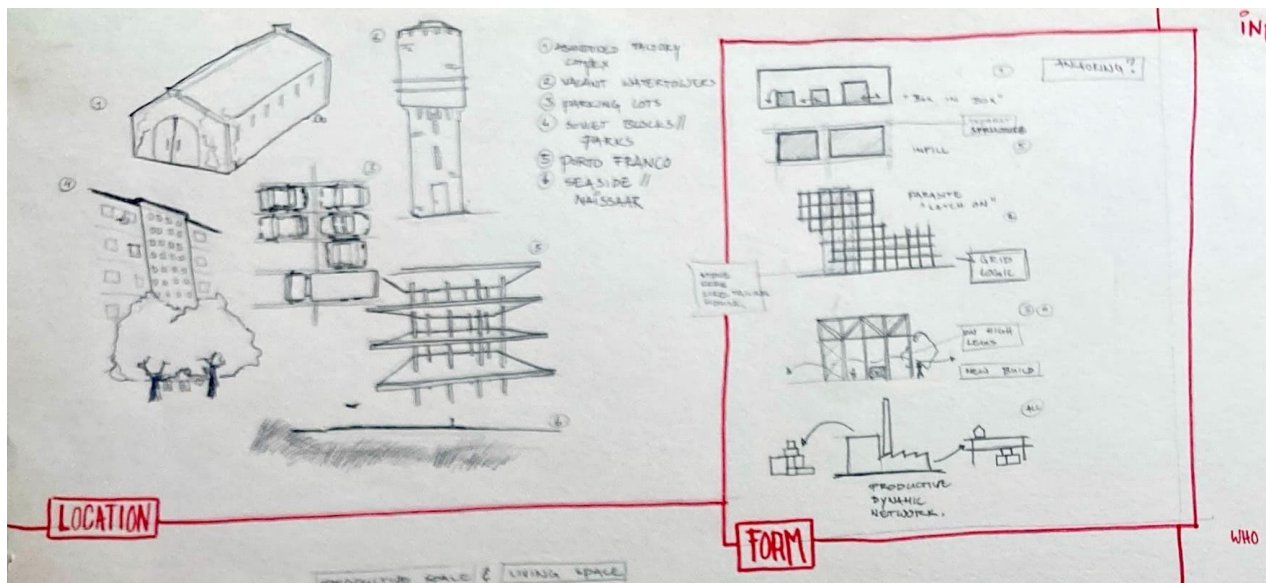 ①
②
① ABANDONED FACTORY
COMPLEX
② VACANT WATERTOWERS
③ PARKING LOTS
④ SOVIET BLOCKS//
PARKS
⑤ PORTO FRANCO
⑥ SEASIDE //
NAISSAAR
③
④
⑤
⑥
LOCATION
ANCHORING?
①
"BOX IN BOX"
INFILL
PARASITE
"LATCH ON"
GRID
LOGIC
ON HIGH
LEGS
NEW BUILD
ALL
PRODUCTIVE
DYNAMIC
NETWORK.
FORM
WHO
PRODUCTIVE SCALE & LIVING SCALE